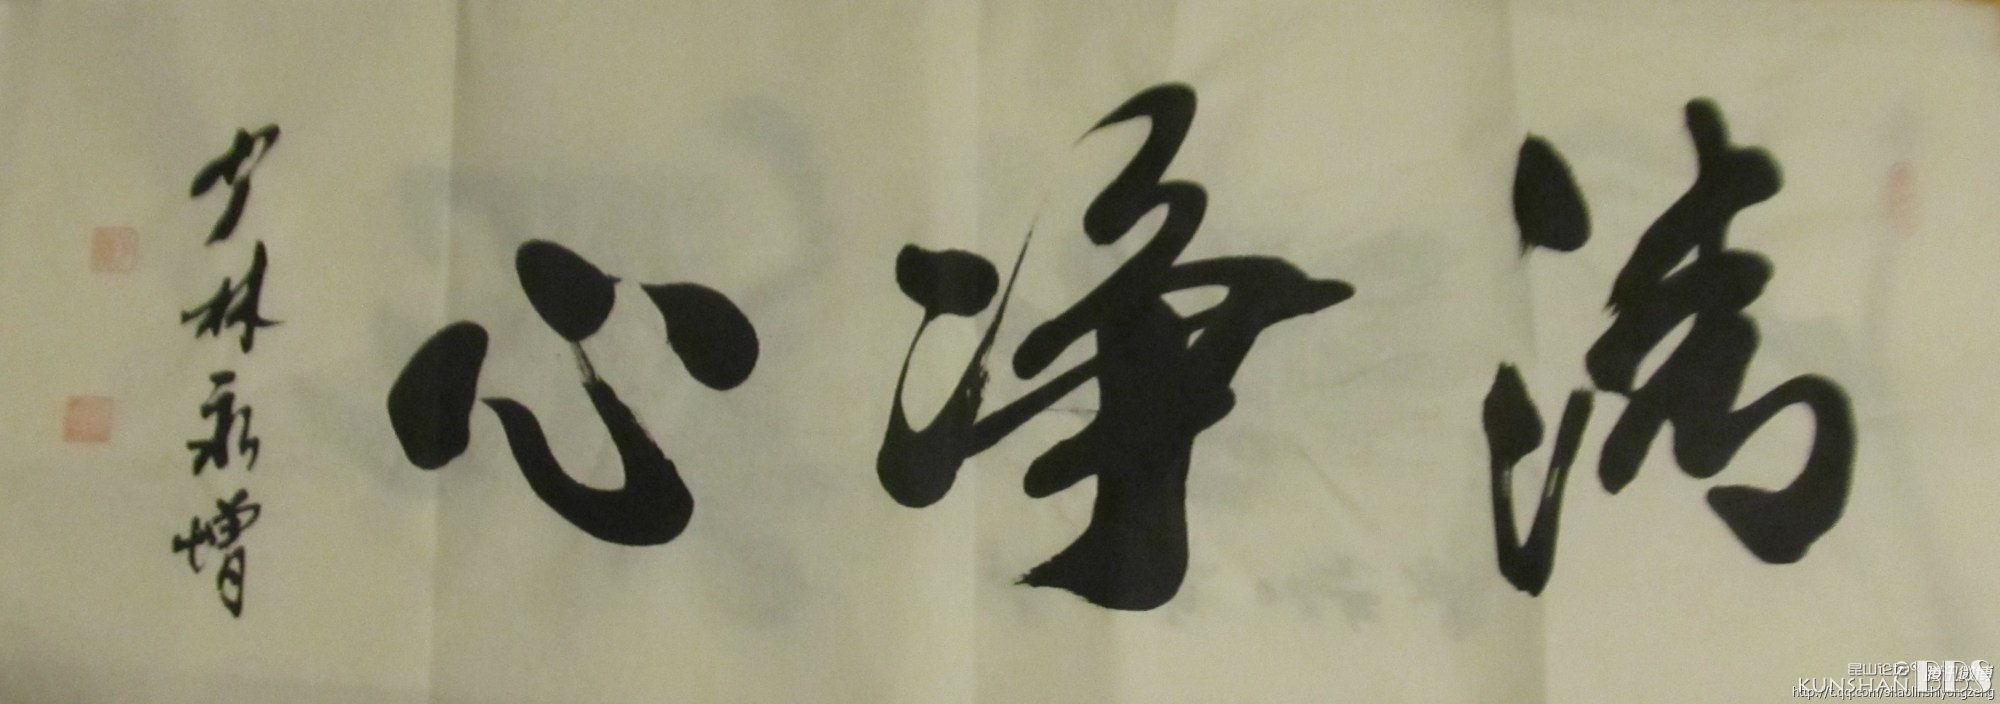 清净心
少林永增
昆山论坛
KUNSHAN BBS
腾讯微博
http://t.qq.com/shaolinshiyongzeng